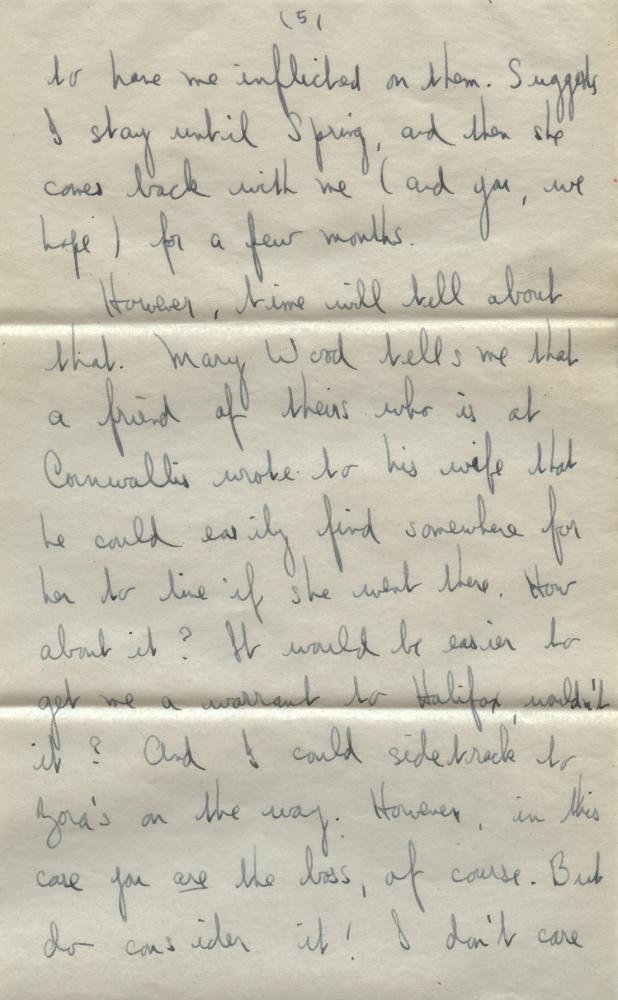 (5)
to have me inflicted on them. Suggests
I stay until Spring, and then she
comes back with me (and you, we
hope) for a few months.
However, time will tell about
that. Mary Wood tells me that
a friend of theirs who is at
Cornwallis wrote to his wife that
he could easily find somewhere for
her to live if she went there. How
about it? It would be easier to
get me a warrant to Halifax, wouldn't
it? And I could sidetrack to
Zora's on the way. However, in this
case you are the boss, of course. But
do consider it! I don't care